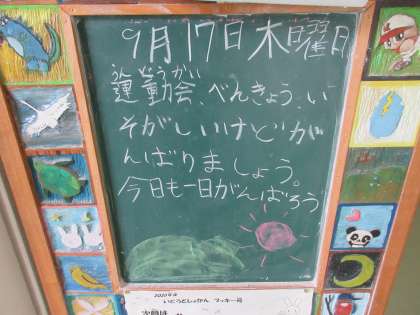 9月17日木曜日
うんどうかい
運動会、べんきょう、い
そがしいけどが
んばりましょう。
今日も一日がんばろう
2020年度
いどうとしょかん マッキー号